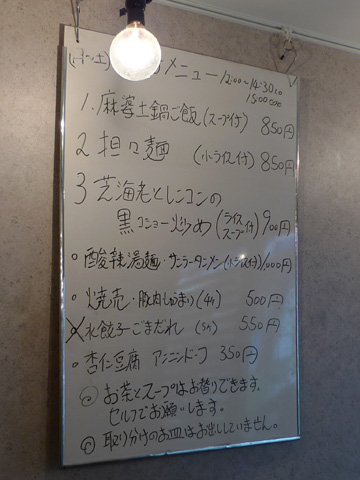 (月〜土) メニュー 12:00〜14:30
15:00
1. 麻婆土鍋ご飯 (スープ付) 850円
2 担々麺 (小ライス付) 850円
3 芝海老とレンコンの
黒コショー炒め (ライス スープ付) 900円
• 酸辣湯麺・サンラータンメン (小ライス付) 1,000円
• 焼売・豚肉しゅうまい (4ヶ) 500円
水餃子ごまだれ (5ヶ) 550円
• 杏仁豆腐 アンニンドーフ 350円
お茶とスープはお替りできます。
セルフでお願いします。
取り分けのお皿はお出ししていません。